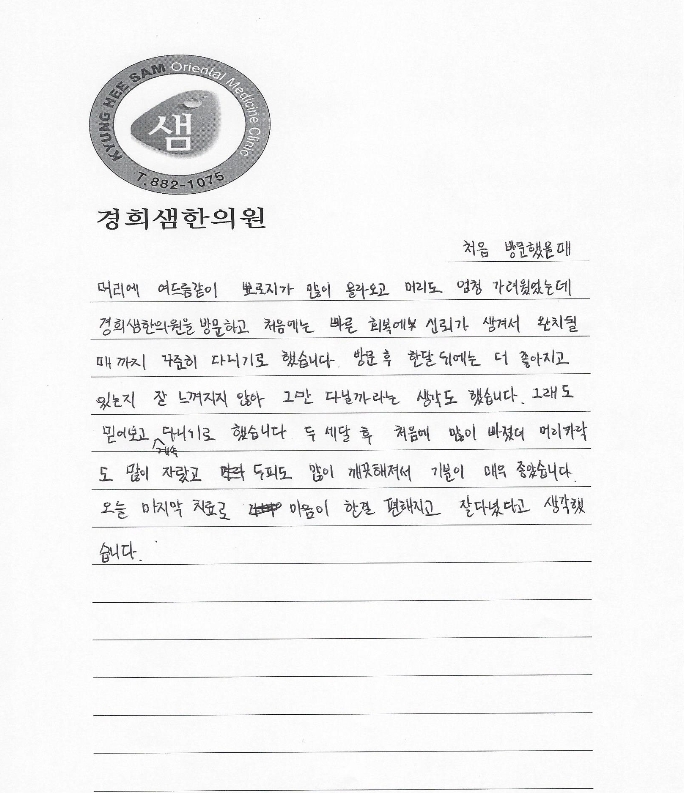 KYUNG HEE SAM Oriental Medicine Clinic
샘
T.882-1075
경희샘한의원
처음 방문했을때
머리에 여드름같이 뾰로지가 많이 올라오고 머리도 엄청 가려웠었는데
경희샘한의원을 방문하고 처음에는 빠른 회복에 신뢰가 생겨서 완치될
때까지 꾸준히 다니기로 했습니다. 방문 후 한달 뒤에는 더 좋아지고
있는지 잘 느껴지지 않아 그만 다닐까라는 생각도 했습니다. 그래도
믿어보고 계속 다니기로 했습니다 두 세달 후 처음에 많이 빠졌던 머리카락
도 많이 자랐고 두피도 많이 깨끗해져서 기분이 매우 좋았습니다.
오늘 마지막 치료로 마음이 한결 편해지고 잘다녔다고 생각했
습니다.